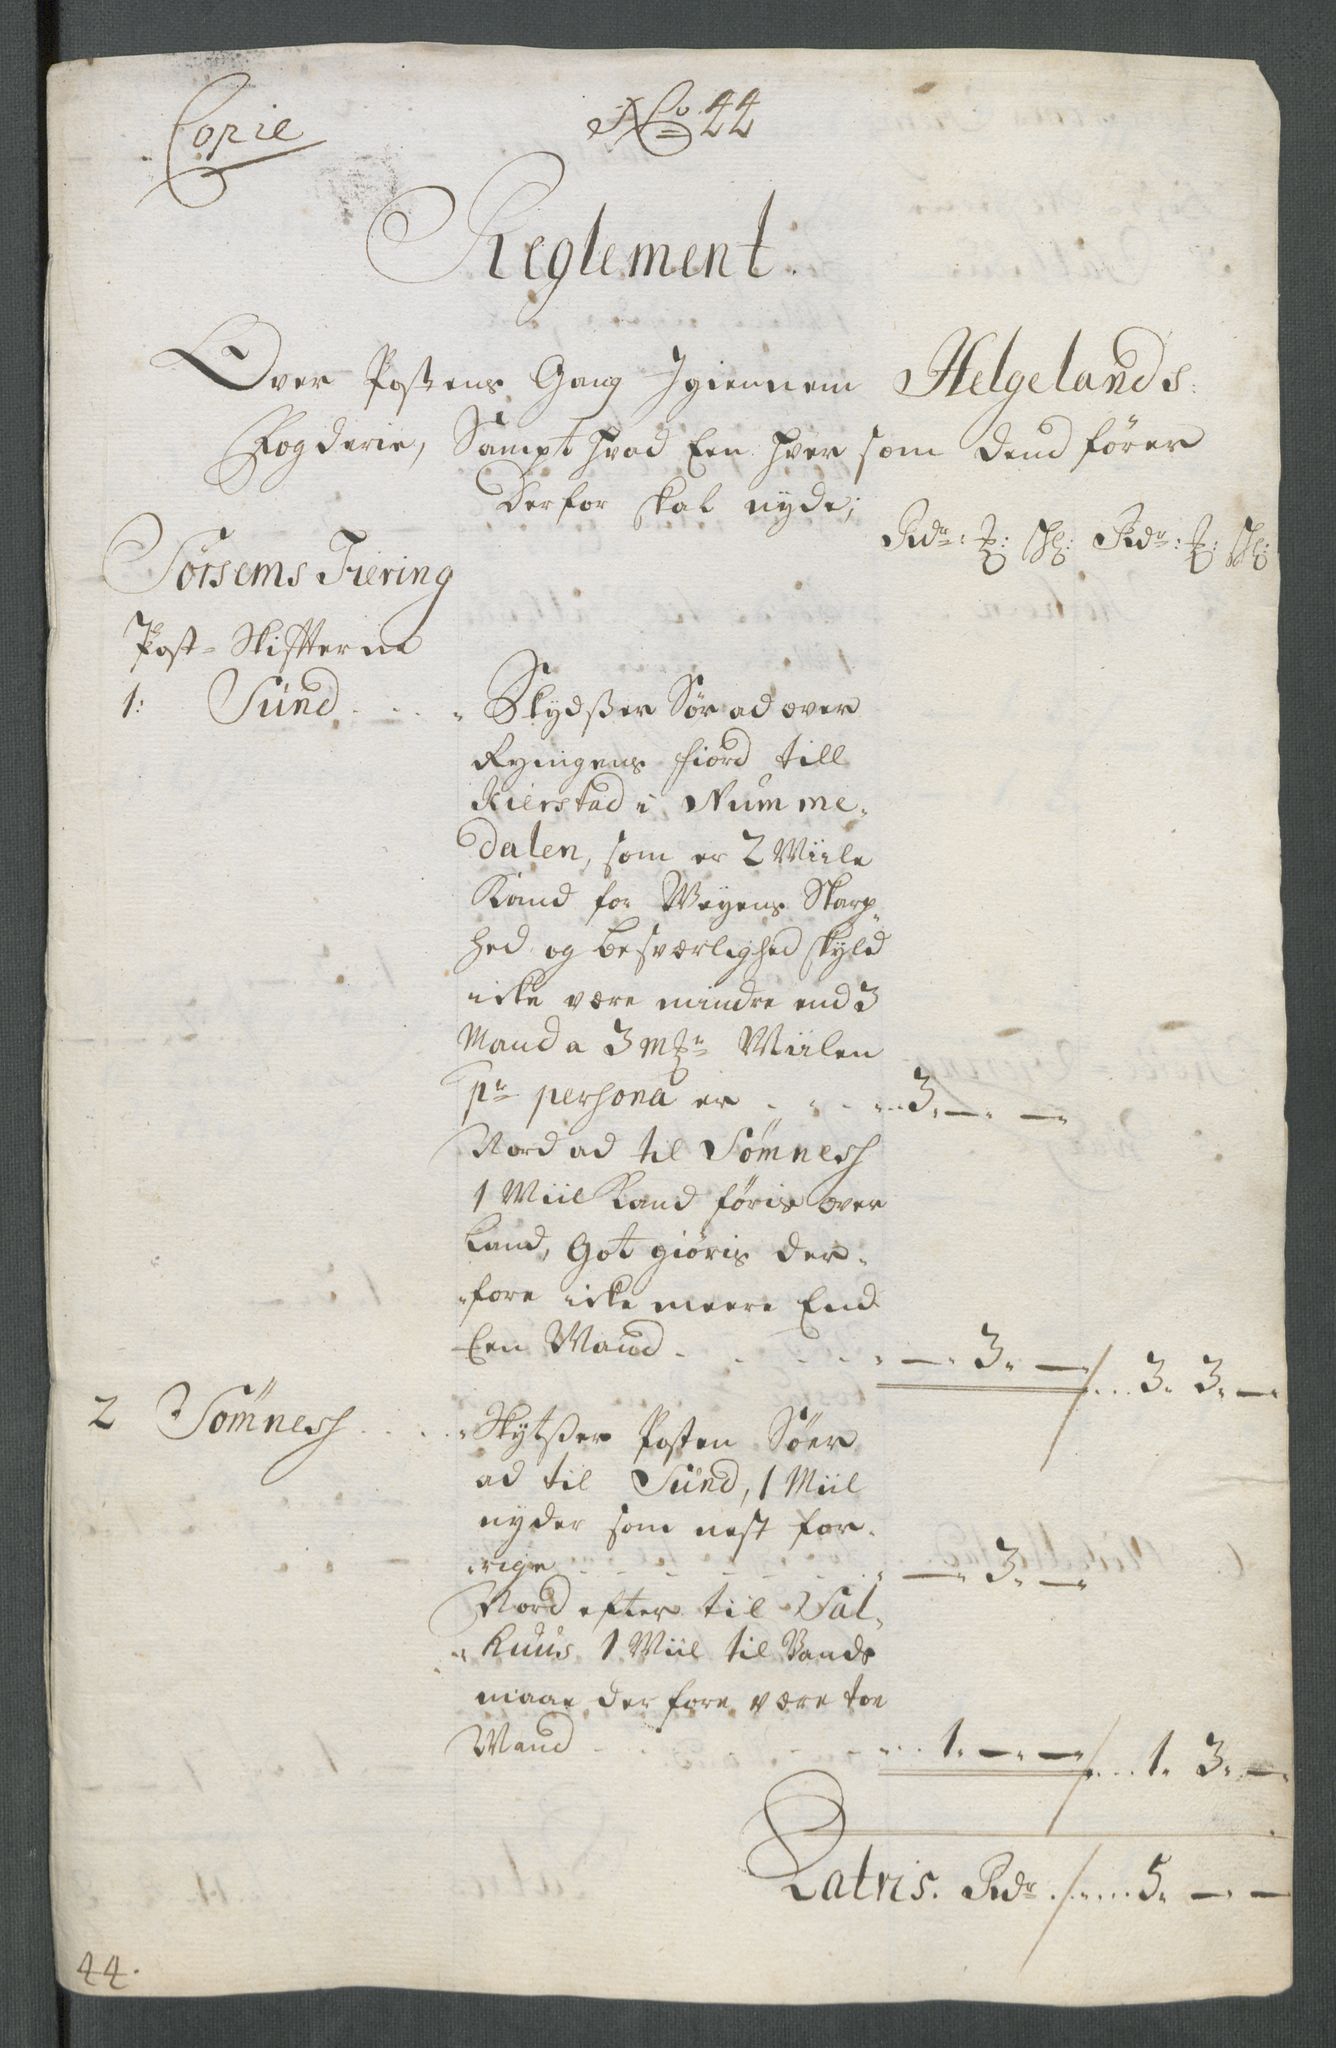 Copie
No 44
Reglement.
Over Postens Gang Igiennem Helgelands
Fogderie, Sampt hvad Een hver som dend fører
derfor skal nyde;
Rdr: : sh: Rdr: : sh:
Sørsems Fiering
Post-Skiffterne
1: Sund . . . Skydsser Sør ad over
Ryingens Fiord till
Kierstad i Numme-
dalen, som er 2 Miile
Kand for Weyens Skarp-
hed og besværlighed skyld
icke være mindre end 3
Mand a 3 mr Miilen
pr persona er . . . . 3. — —
Nord ad til Sømnesh
1 Miil Kand føris over
Land, Got giøris der-
fore icke meere End
Een Mand . . . . . — 3. — / . . . 3. 3. —
2 Sømnesh . . . Skytsser Posten Søer
ad til Sund, 1 Miil
nyder som nest for-
rige . . . . . — 3. —
Nord efter til Sal-
huus 1 Miil til Vands
maae derfore være toe
Mand . . . . . 1. — — / . . . 1. 3. —
Latris. Rdr . / . . . 5. — —
44.